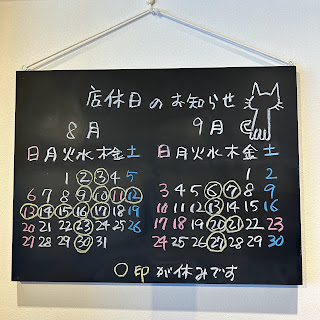 店休日のお知らせ
8月
日月火水木金土
1 2 3 4 5
6 7 8 9 10 11 12
13 14 15 16 17 18 19
20 21 22 23 24 25 26
27 28 29 30 31
9月
日月火水木金土
1 2
3 4 5 6 7 8 9
10 11 12 13 14 15 16
17 18 19 20 21 22 23
24 25 26 27 28 29 30
○印が休みです